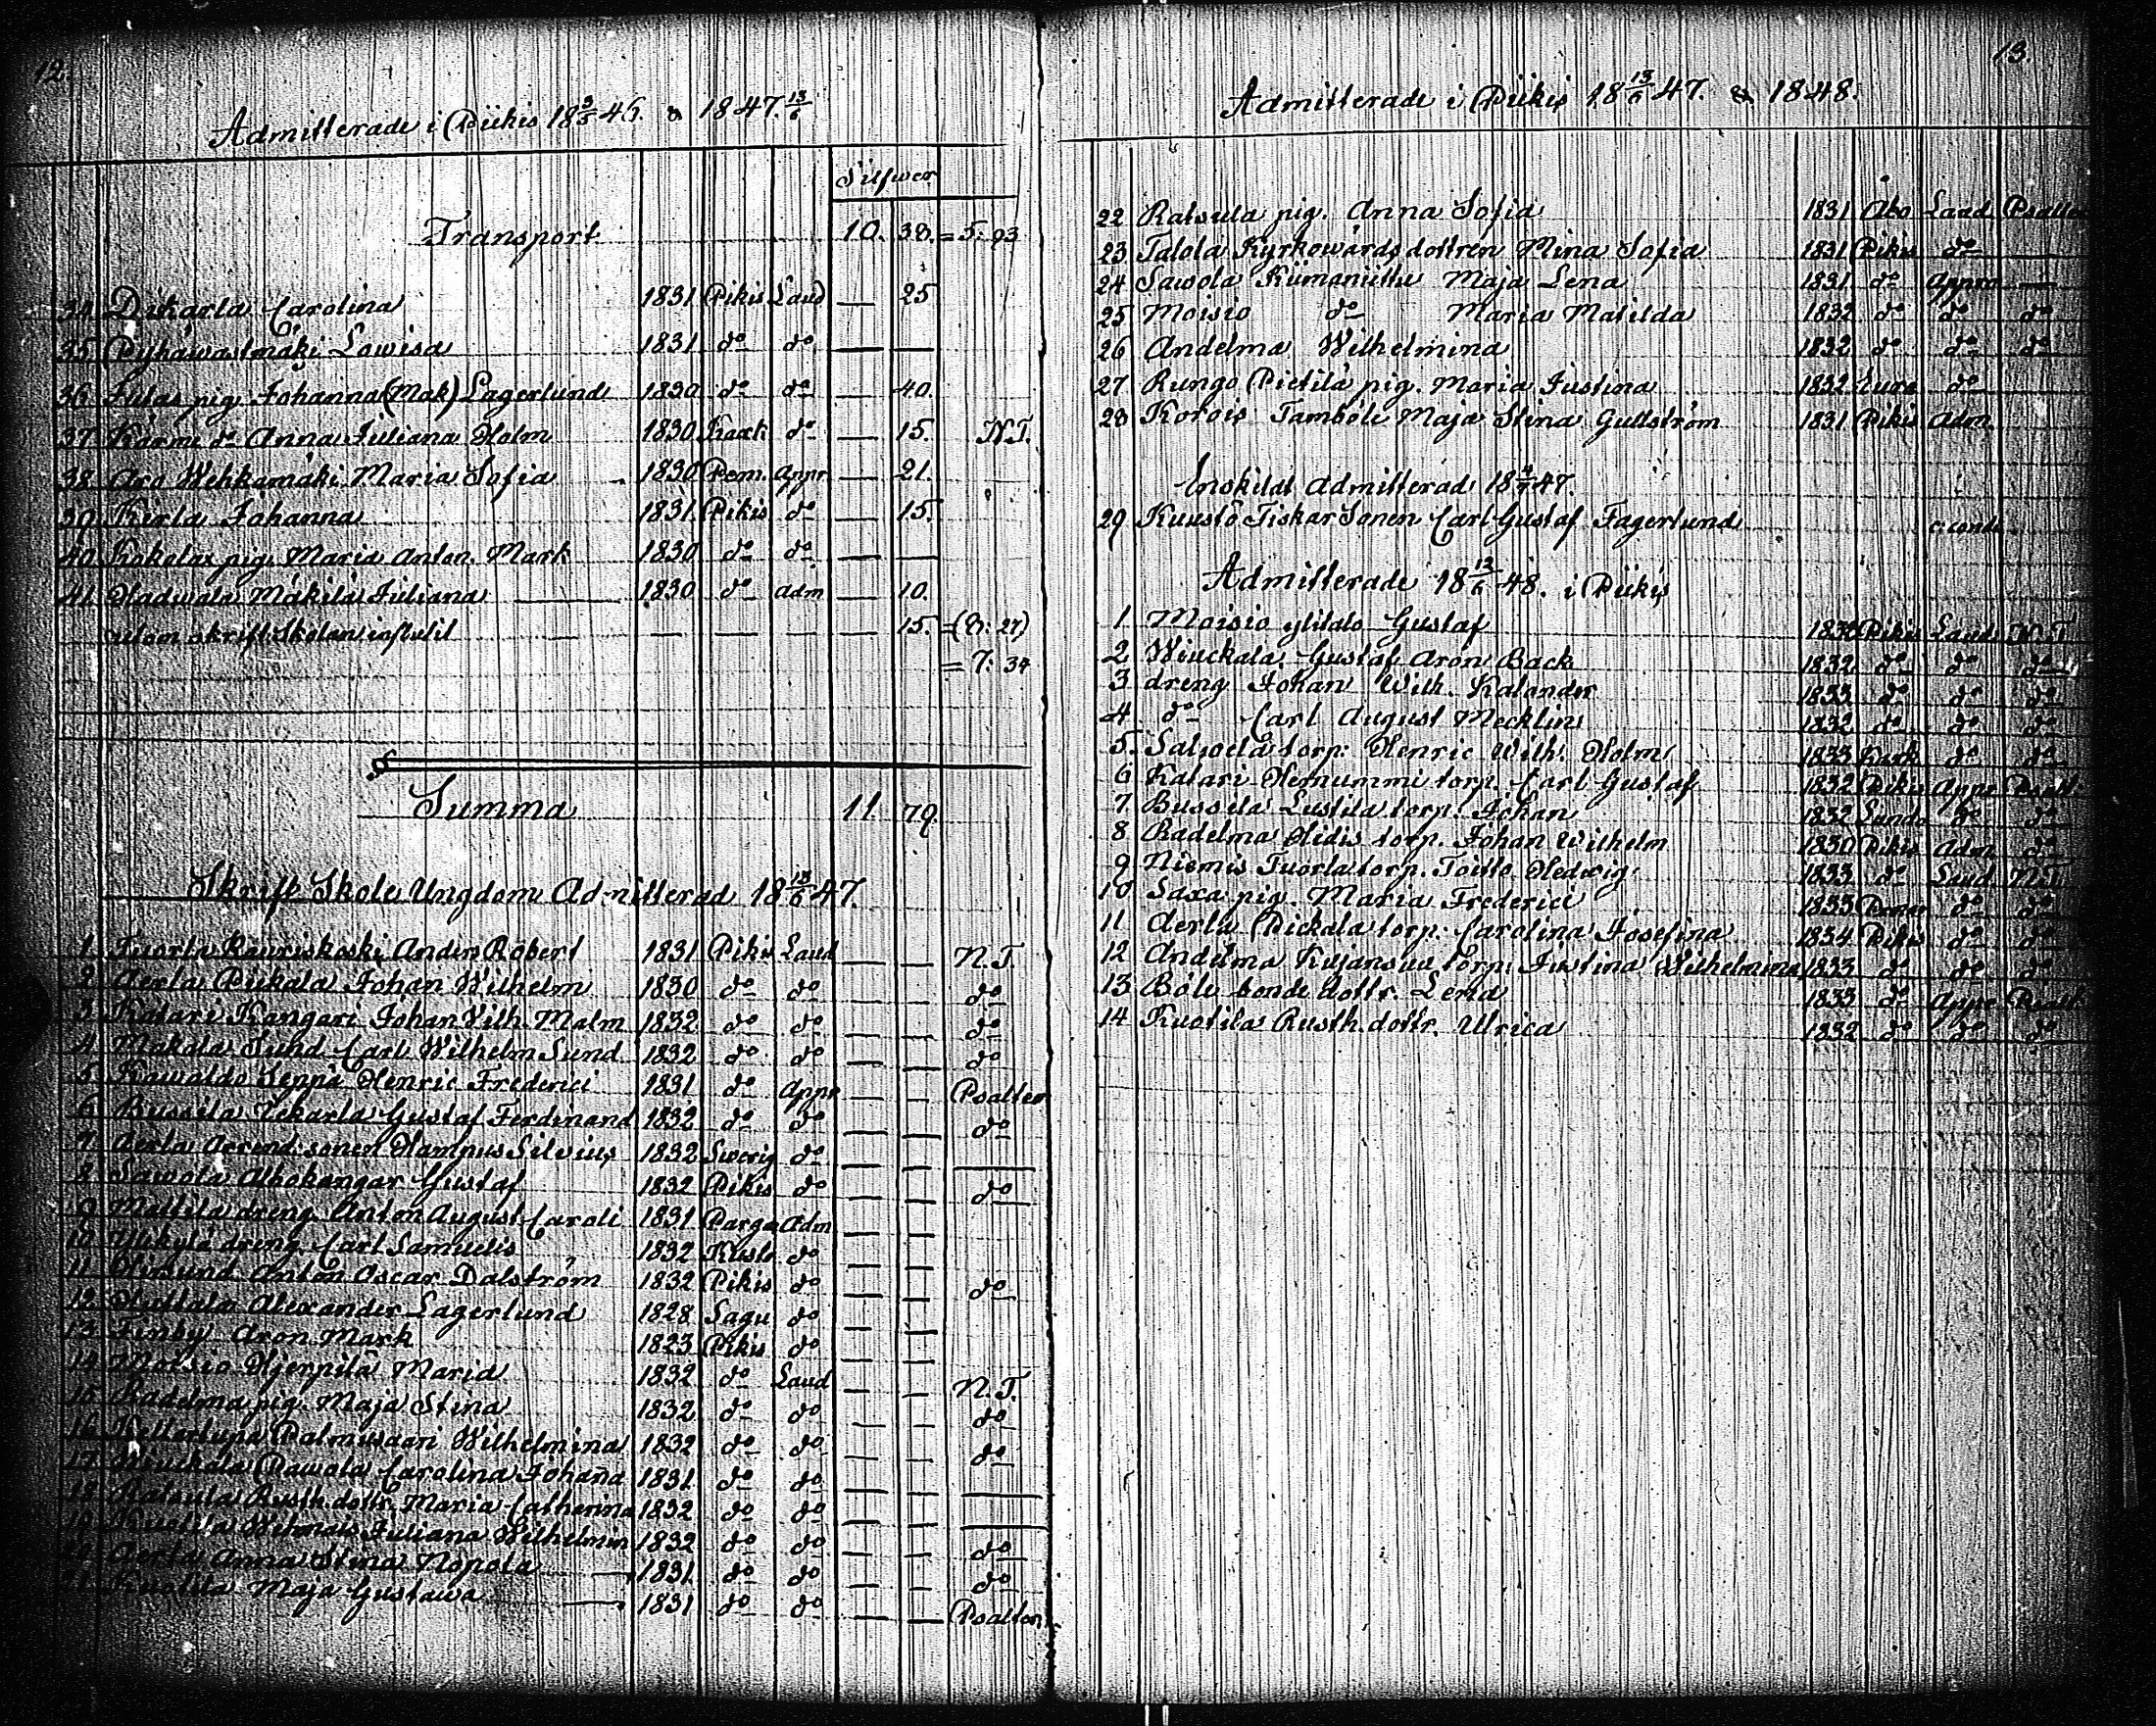 12.
Admitterade i Piikis 18 3/5 46. & 1847. 13/6
Silfwer
Transport 10. 38. = 5: 93
34 Dikarla Carolina 1831 Pikis Laud — 25
35 Pyhäwastmäki Lowisa 1831 do do — —
36 Julas pig. Johanna (Mak) Lagerlund 1830 do do — 40.
37 Kärmi do Anna Juliana Holm 1830 Kark do — 15. N.T.
38 Aro Wehkamäki Maria Sofia 1830 Pem. Appr — 21.
39 Kirla Johanna 1831 Pikis do — 15.
40 Kokolax pig. Maria Anton. Mark 1830 do do — —
41. Hadwala Mäkilä Juliana 1830 do adm — 10.
utom skrift Skolan influtit — — — — 15. = (8: 27)
= 7: 34
Summa 11. 79.
Skrift Skole Ungdom Admitterad 18 13/6 47.
1. Tuorla Kauriskoski Anders Robert 1831 Pikis Laud — — N.T.
2 Aerla Piikala Johan Wilhelm 1830 do do — — do
3 Katari Kangari Johan Wilh. Malm 1832 do do — — do
4 Makala Sund Carl Wilhelm Sund 1832 do do — — do
5 Kawaldo Seppä Henric Frederici 1831 do Appr — — Psalter
6 Bussila Uckarla Gustaf Ferdinand 1832 do do — — do
7 Aerla Arrend. sonen Hampus Silvius 1832 Swerig do — — —
8 Sawola Alhokangar Gustaf 1832 Pikis do — — do
9 Mattila dreng Anton August Caroli 1831 Pargas Adm — —
10 Ylikylä dreng Carl Samuelis 1832 Kusto do — —
11 Harund Anton Oscar Dalström 1832 Pikis do — — do
12 Huttala Alexander Lagerlund 1828 Sagu do — —
13 Finby Aron Mark 1823 Pikis do — —
14 Moisio Hjerppilä Maria 1832 do Laud — — N.T.
15 Radelma pig. Maja Stina 1832 do do — — do
16 Wilhelmina 1832 do do — — do
17 Wiuckala Pawola Carolina Johana 1831 do do — — —
18 Ratsula Rusth. dottr. Maria Catherina 1832 do do — — —
19 Kuotila Juliana Wilhelmin 1832 do do — — do
20 Aerla Anna Stina Nopola 1831 do do — — do
21 Kuotila Maja Gustawa 1831 do do — — Psalter
13.
Admitterade i Piikis 18 13/6 47. & 1848.
22 Ratsula pig. Anna Sofia 1831 Abo Laud Psalter
23 Talola Kyrkowärds dottren Mina Sofia 1831 Pikis do —
24 Sawola Kiimaniittu Maja Lena 1831 do Appro —
25 Moisio do Maria Matilda 1832 do do do
26 Andelma Wilhelmina 1832 do do do
27 Rungo Pietilä pig. Maria Justina 1832 Eura do
28 Korois Tamböle Maja Stina Gullström 1831 Pikis Adm.
Enskildt Admitterad 18 4/7 47.
29 Kuustö Fiskar Sonen Carl Gustaf Fagerlund c. cond.
Admitterade 18 12/6 48. i Piikis
1 Moisio ylitalo Gustaf 1830 Pikis Laud N.T.
2 Wiuckala Gustaf Aron Back 1832 do do do
3 dreng Johan Wilh. Kalander 1833 do do do
4 do Carl August Mecklin 1832 do do do
5. Salwela torp. Henric Wilh. Holm 1833 Kark do do
6 Katari Hemummi torp. Carl Gustaf 1832 Pikis Appr Psalt.
7 Bussila Eustila torp. Johan 1832 Lundo do do
8 Radelma Hidis torp. Johan Wilhelm 1830 Pikis Adm. do
9 Niemis Tuorla torp. Toitto Hedwig 1833 do Laud N.T.
10 Saxa pig. Maria Frederici 1833 Pemar do do
11 Aerla Pickala torp. Carolina Josefina 1834 Pikis do do
12 Andelma Kujansuu torp. Justina Wilhelmina 1833 do do do
13 Böle bonde dottr. Lena 1833 do Appr Psalt.
14 Kuotila Rusth. dottr. Ulrica 1832 do do do